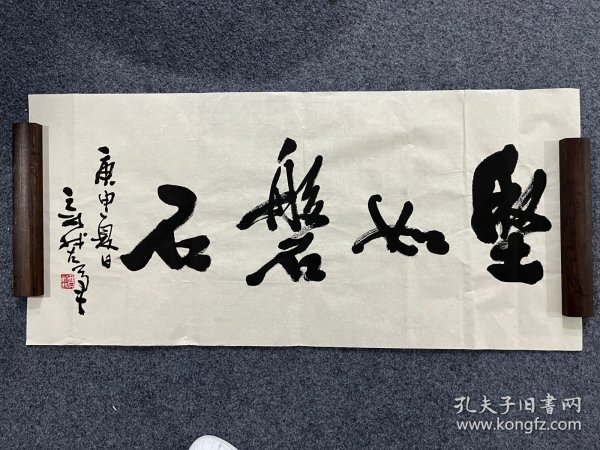 坚如磐石
庚申夏日
孔夫子旧书网
www.kongfz.com